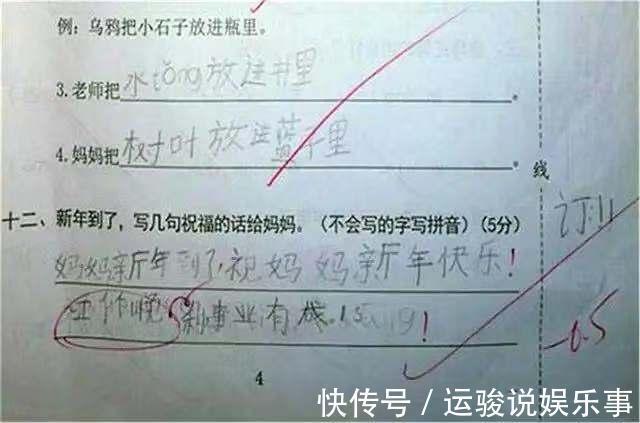 例：乌鸦把小石子放进瓶里。
3.老师把水tǒng放进井里。
4.妈妈把树叶放进蓝子里。
线
十二、新年到了，写几句祝福的话给妈妈。（不会写的字写拼音）（5分）
订
妈妈新年到了，祝妈妈新年快乐！
事业有
！
-0.5
4
快传号/运骏说娱乐事